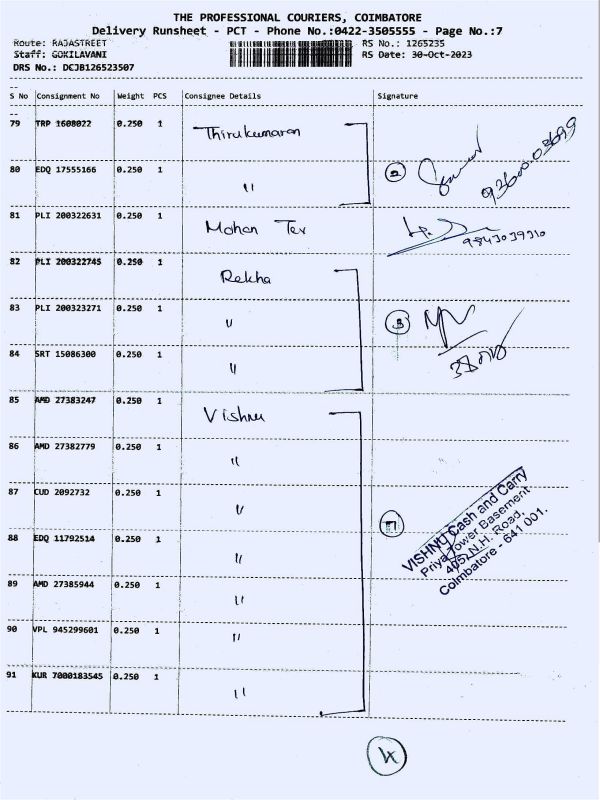 THE PROFESSIONAL COURIERS, COIMBATORE
Delivery Runsheet - PCT - Phone No.:0422-3505555 - Page No.:7
Route: RAJASTREET
RS No.: 1265235
Staff: GOKILAVANI
RS Date: 30-Oct-2023
DRS No.: DCJB126523507
--
S No Consignment No Weight PCS Consignee Details Signature
--
79 TRP 1608022 0.250 1 Thirukumaran
80 EDQ 17555166 0.250 1 " 2
81 PLI 200322631 0.250 1 Mohan Tex 9843039310
82 PLI 200322745 0.250 1 Rekha
83 PLI 200323271 0.250 1 " 3
84 SRT 15086300 0.250 1 "
85 AMD 27383247 0.250 1 Vishnu
86 AMD 27382779 0.250 1 "
87 CUD 2092732 0.250 1 " 7
88 EDQ 11792514 0.250 1 "
89 AMD 27385944 0.250 1 "
90 VPL 945299601 0.250 1 "
91 KUR 7000183545 0.250 1 "
VISHNU Cash and Carry
Priya Tower Basement
405, N.H. Road,
Coimbatore - 641 001.